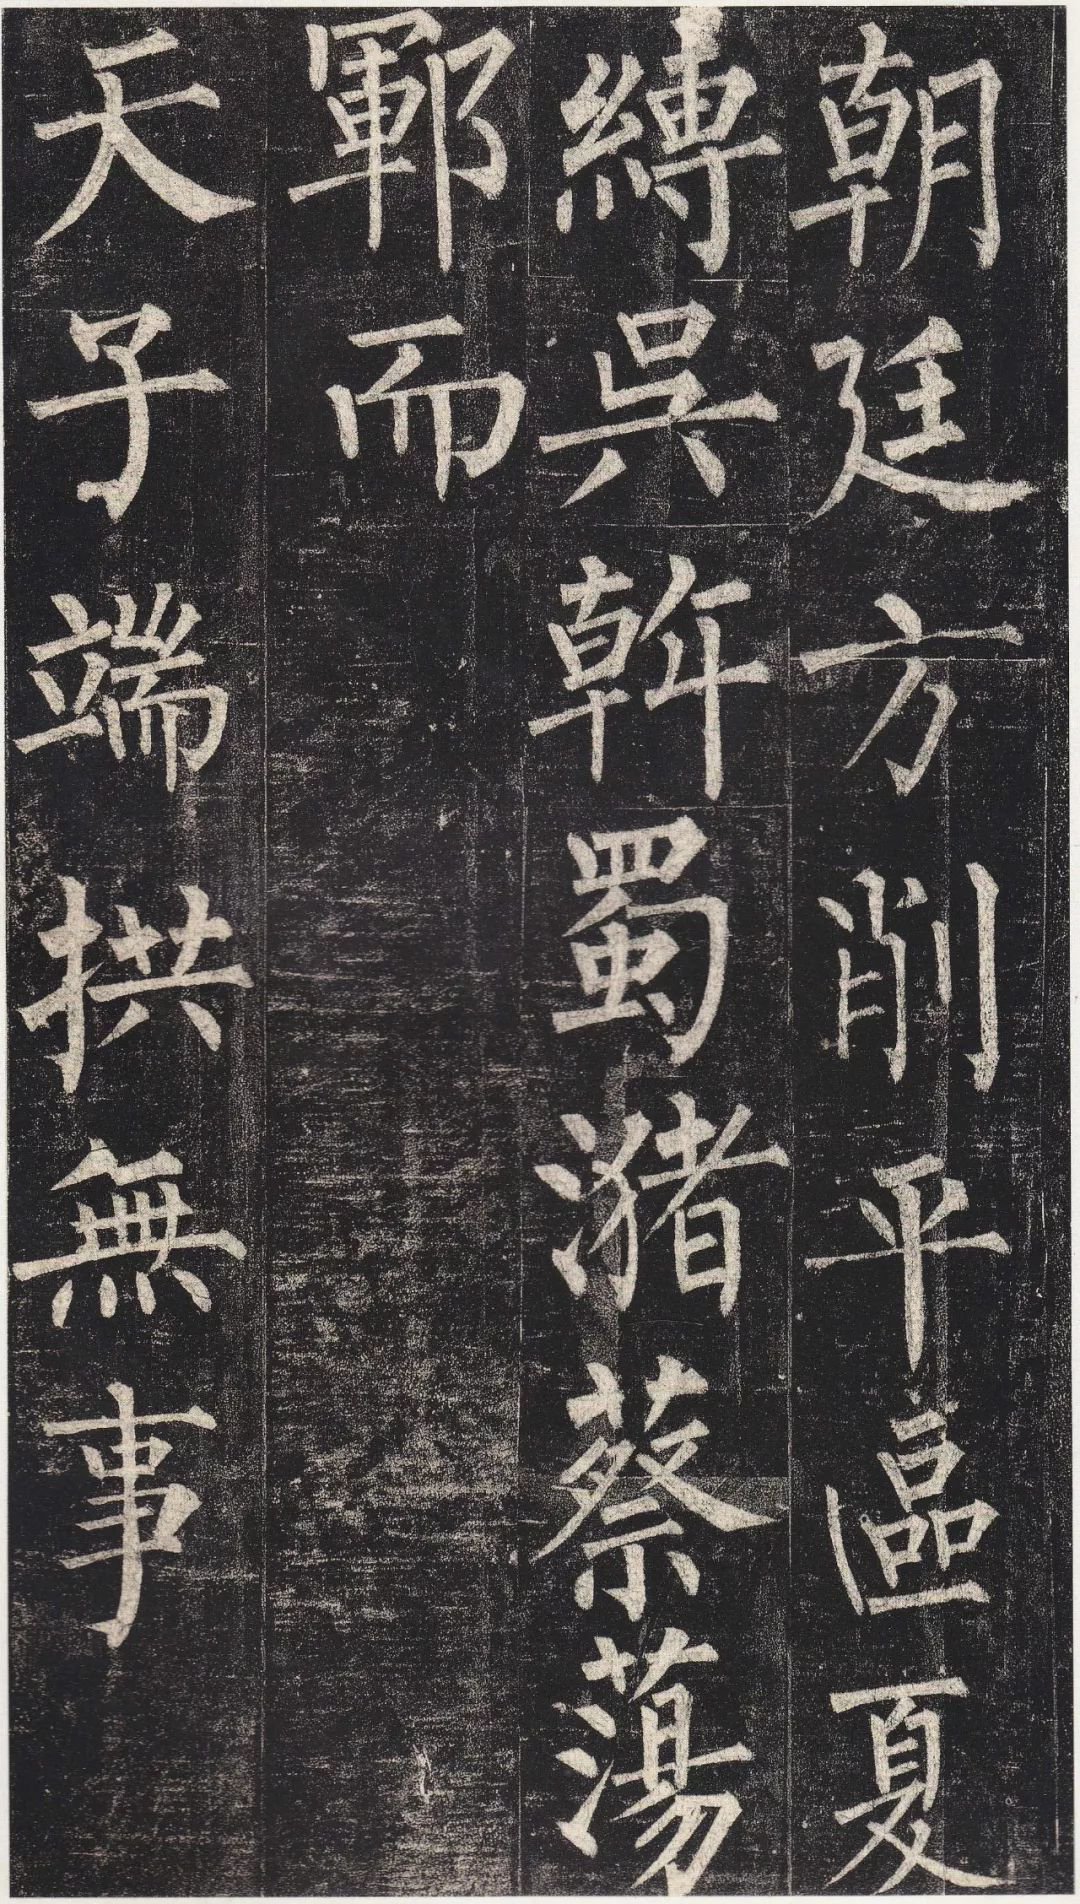 朝廷方削平區夏
縛吳斡蜀瀦蔡蕩
鄆而
天子端拱無事